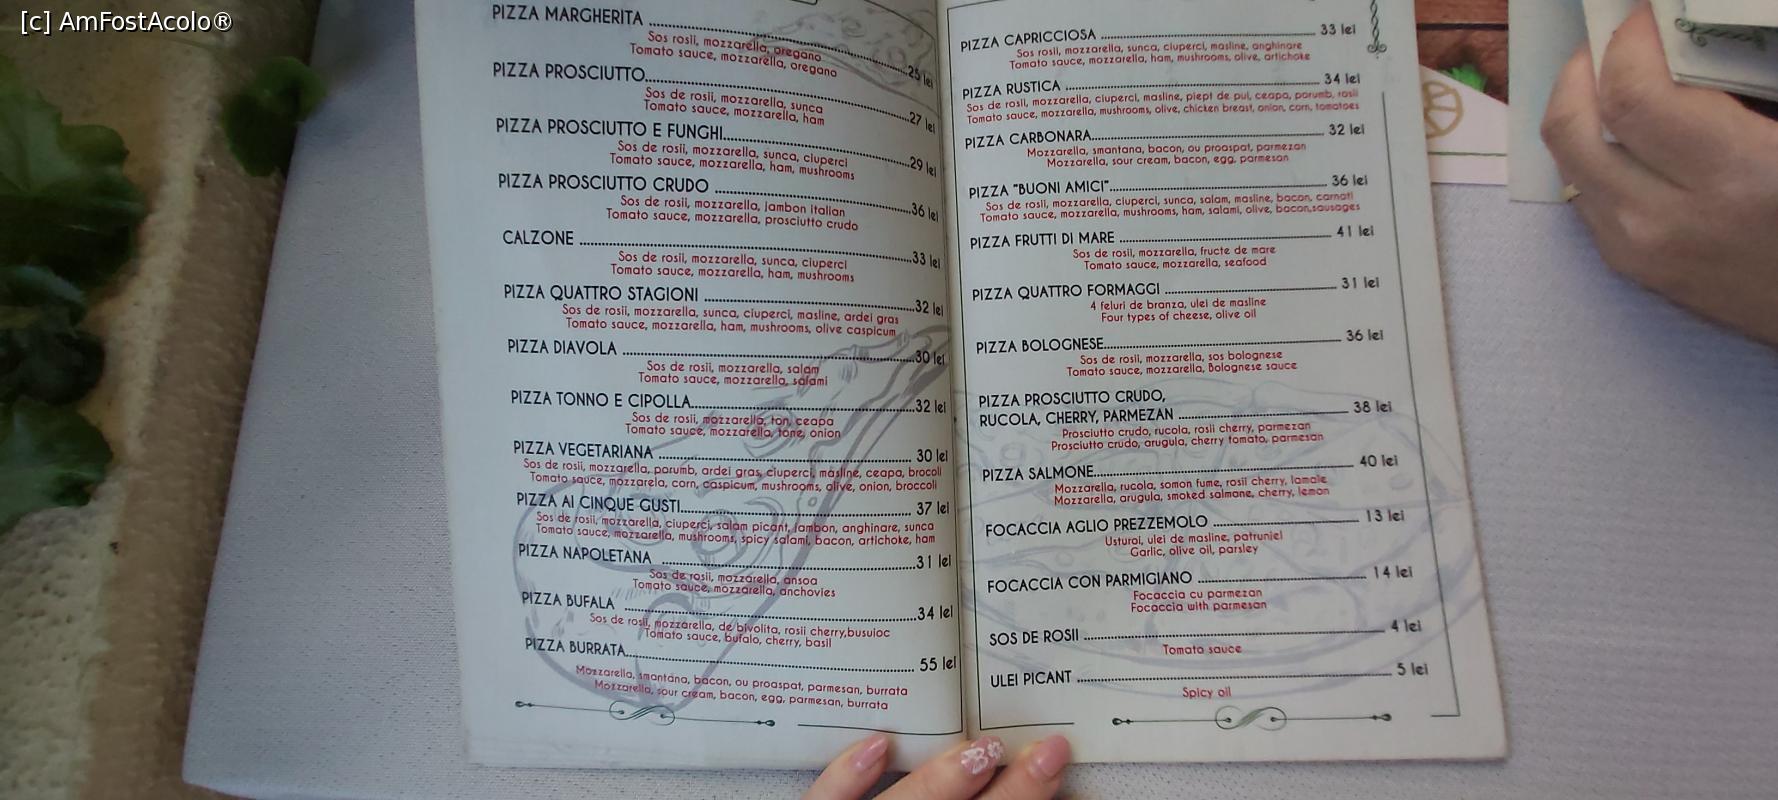 [c] AmFostAcolo®
PIZZA MARGHERITA ........ 25 lei
Sos rosii, mozzarella, oregano
Tomato sauce, mozzarella, oregano
PIZZA PROSCIUTTO........ 27 lei
Sos de rosii, mozzarella, sunca
Tomato sauce, mozzarella, ham
PIZZA PROSCIUTTO E FUNGHI........ 29 lei
Sos de rosii, mozzarella, sunca, ciuperci
Tomato sauce, mozzarella, ham, mushrooms
PIZZA PROSCIUTTO CRUDO ........ 36 lei
Sos de rosii, mozzarella, jambon italian
Tomato sauce, mozzarella, prosciutto crudo
CALZONE ........ 33 lei
Sos de rosii, mozzarella, sunca, ciuperci
Tomato sauce, mozzarella, ham, mushrooms
PIZZA QUATTRO STAGIONI ........ 32 lei
Sos de rosii, mozzarella, sunca, ciuperci, masline, ardei gras
Tomato sauce, mozzarella, ham, mushrooms, olive caspicum
PIZZA DIAVOLA ........ 30 lei
Sos de rosii, mozzarella, salam
Tomato sauce, mozzarella, salami
PIZZA TONNO E CIPOLLA........ 32 lei
Sos de rosii, mozzarella, ton, ceapa
Tomato sauce, mozzarella, tone, onion
PIZZA VEGETARIANA ........ 30 lei
Sos de rosii, mozzarella, porumb, ardei gras, ciuperci, masline, ceapa, brocoli
Tomato sauce, mozzarela, corn, caspicum, mushrooms, olive, onion, broccoli
PIZZA AI CINQUE GUSTI........ 37 lei
Sos de rosii, mozzarella, ciuperci, salam picant, jambon, anghinare, sunca
Tomato sauce, mozzarella, mushrooms, spicy salami, bacon, artichoke, ham
PIZZA NAPOLETANA ........ 31 lei
Sos de rosii, mozzarella, ansoa
Tomato sauce, mozzarella, anchovies
PIZZA BUFALA ........ 34 lei
Sos de rosii, mozzarella, de bivolita, rosii cherry,busuioc
Tomato sauce, bufalo, cherry, basil
PIZZA BURRATA........ 55 lei
Mozzarella, smantana, bacon, ou proaspat, parmesan, burrata
Mozzarella, sour cream, bacon, egg, parmesan, burrata
PIZZA CAPRICCIOSA ........ 33 lei
Sos rosii, mozzarella, sunca, ciuperci, masline, anghinare
Tomato sauce, mozzarella, ham, mushrooms, olive, artichoke
PIZZA RUSTICA ........ 34 lei
Sos de rosii, mozzarella, ciuperci, masline, piept de pui, ceapa, porumb, rosii
Tomato sauce, mozzarella, mushrooms, olive, chicken breast, onion, corn, tomatoes
PIZZA CARBONARA........ 32 lei
Mozzarella, smantana, bacon, ou proaspat, parmezan
Mozzarella, sour cream, bacon, egg, parmesan
PIZZA "BUONI AMICI"........ 36 lei
Sos de rosii, mozzarella, ciuperci, sunca, salam, masline, bacon, carnati
Tomato sauce, mozzarella, mushrooms, ham, salami, olive, bacon,sausages
PIZZA FRUTTI DI MARE ........ 41 lei
Sos de rosii, mozzarella, fructe de mare
Tomato sauce, mozzarella, seafood
PIZZA QUATTRO FORMAGGI ........ 31 lei
4 feluri de branza, ulei de masline
Four types of cheese, olive oil
PIZZA BOLOGNESE........ 36 lei
Sos de rosii, mozzarella, sos bolognese
Tomato sauce, mozzarella, Bolognese sauce
PIZZA PROSCIUTTO CRUDO,
RUCOLA, CHERRY, PARMEZAN ........ 38 lei
Prosciutto crudo, rucola, rosii cherry, parmezan
Prosciutto crudo, arugula, cherry tomato, parmesan
PIZZA SALMONE........ 40 lei
Mozzarella, rucola, somon fume, rosii cherry, lamaie
Mozzarella, arugula, smoked salmone, cherry, lemon
FOCACCIA AGLIO PREZZEMOLO ........ 13 lei
Usturoi, ulei de masline, patrunjel
Garlic, olive oil, parsley
FOCACCIA CON PARMIGIANO ........ 14 lei
Focaccia cu parmezan
Focaccia with parmesan
SOS DE ROSII ........ 4 lei
Tomato sauce
ULEI PICANT ........ 5 lei
Spicy oil